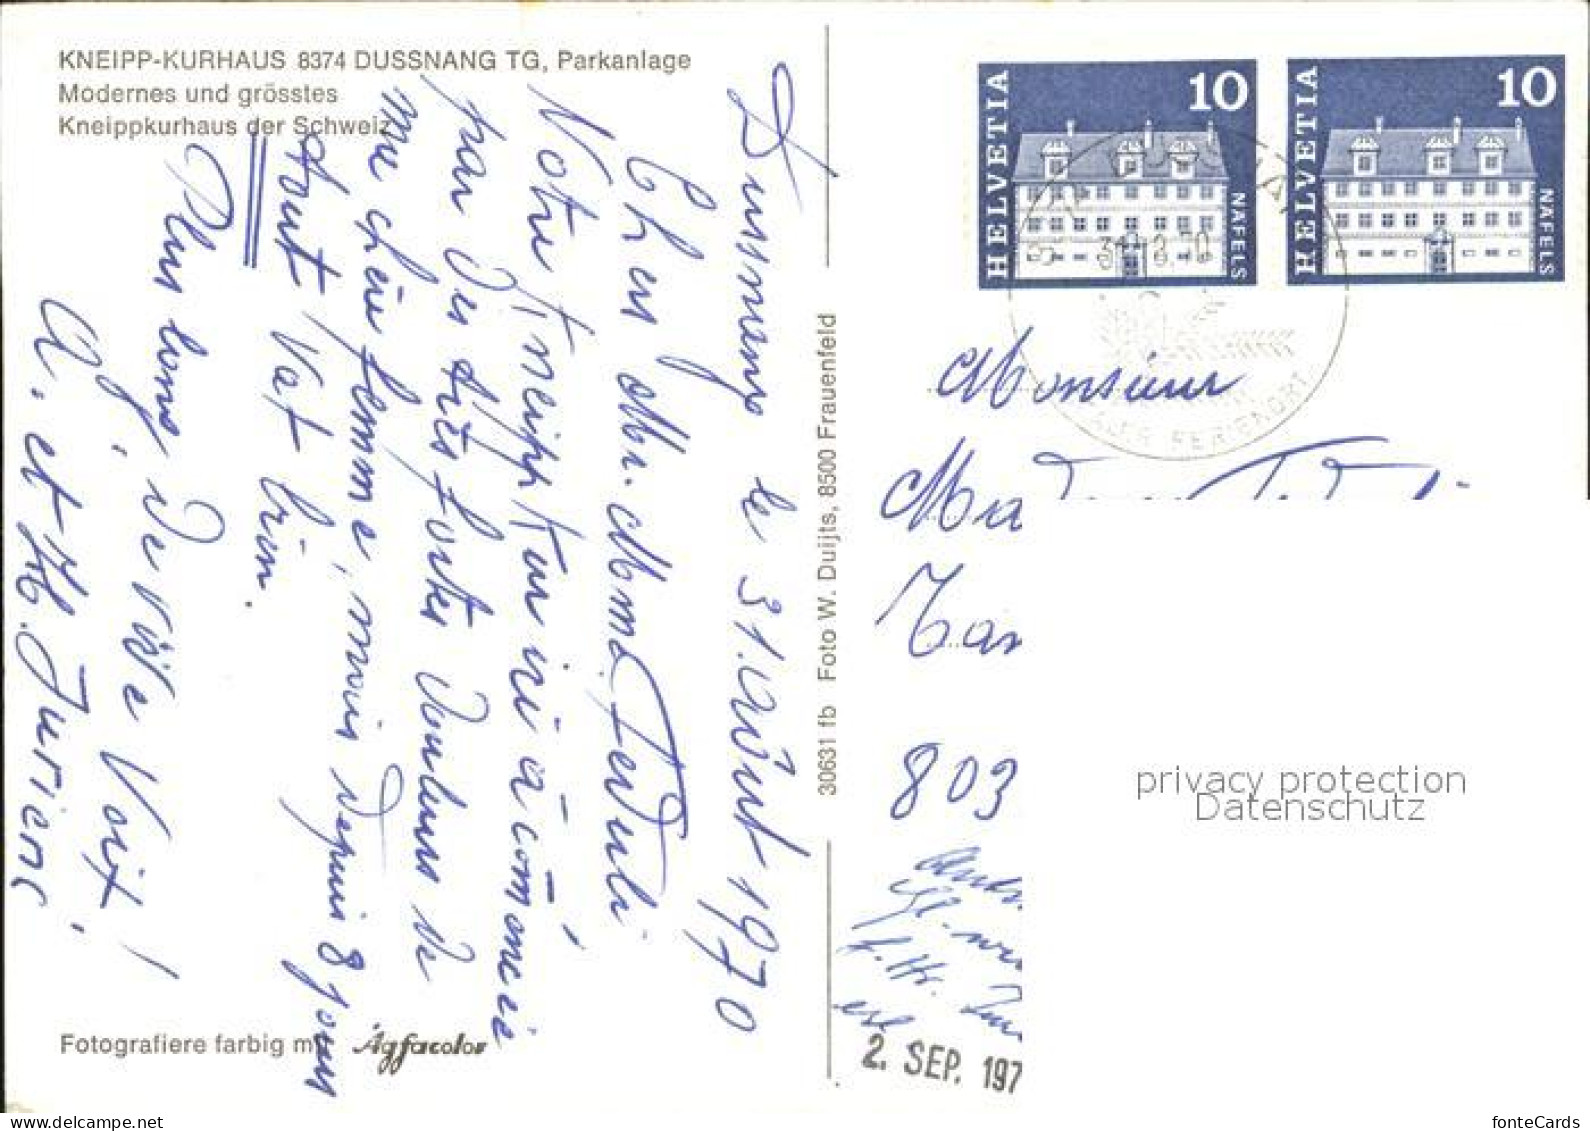 KNEIPP-KURHAUS 8374 DUSSNANG TG, Parkanlage
Modernes und grösstes
Kneippkurhaus der Schweiz
Dussnang le 31. Août 1970
Chers Mr. Mme. Feduli
Notre Kneippkur ici à commencée
par des très fortes douleurs de
ma chère femme, mais depuis 8 jours
tout vat bien.
Plus long, de vive Voix!
A. et H. Juriens
Fotografiere farbig mit Agfacolor
30631 fb Foto W. Duijts, 8500 Frauenfeld
HELVETIA 10 NÄFELS
HELVETIA 10 NÄFELS
FERIENORT
Monsieur
803
2. SEP. 197
privacy protection
Datenschutz
fonteCards
www.delcampe.net